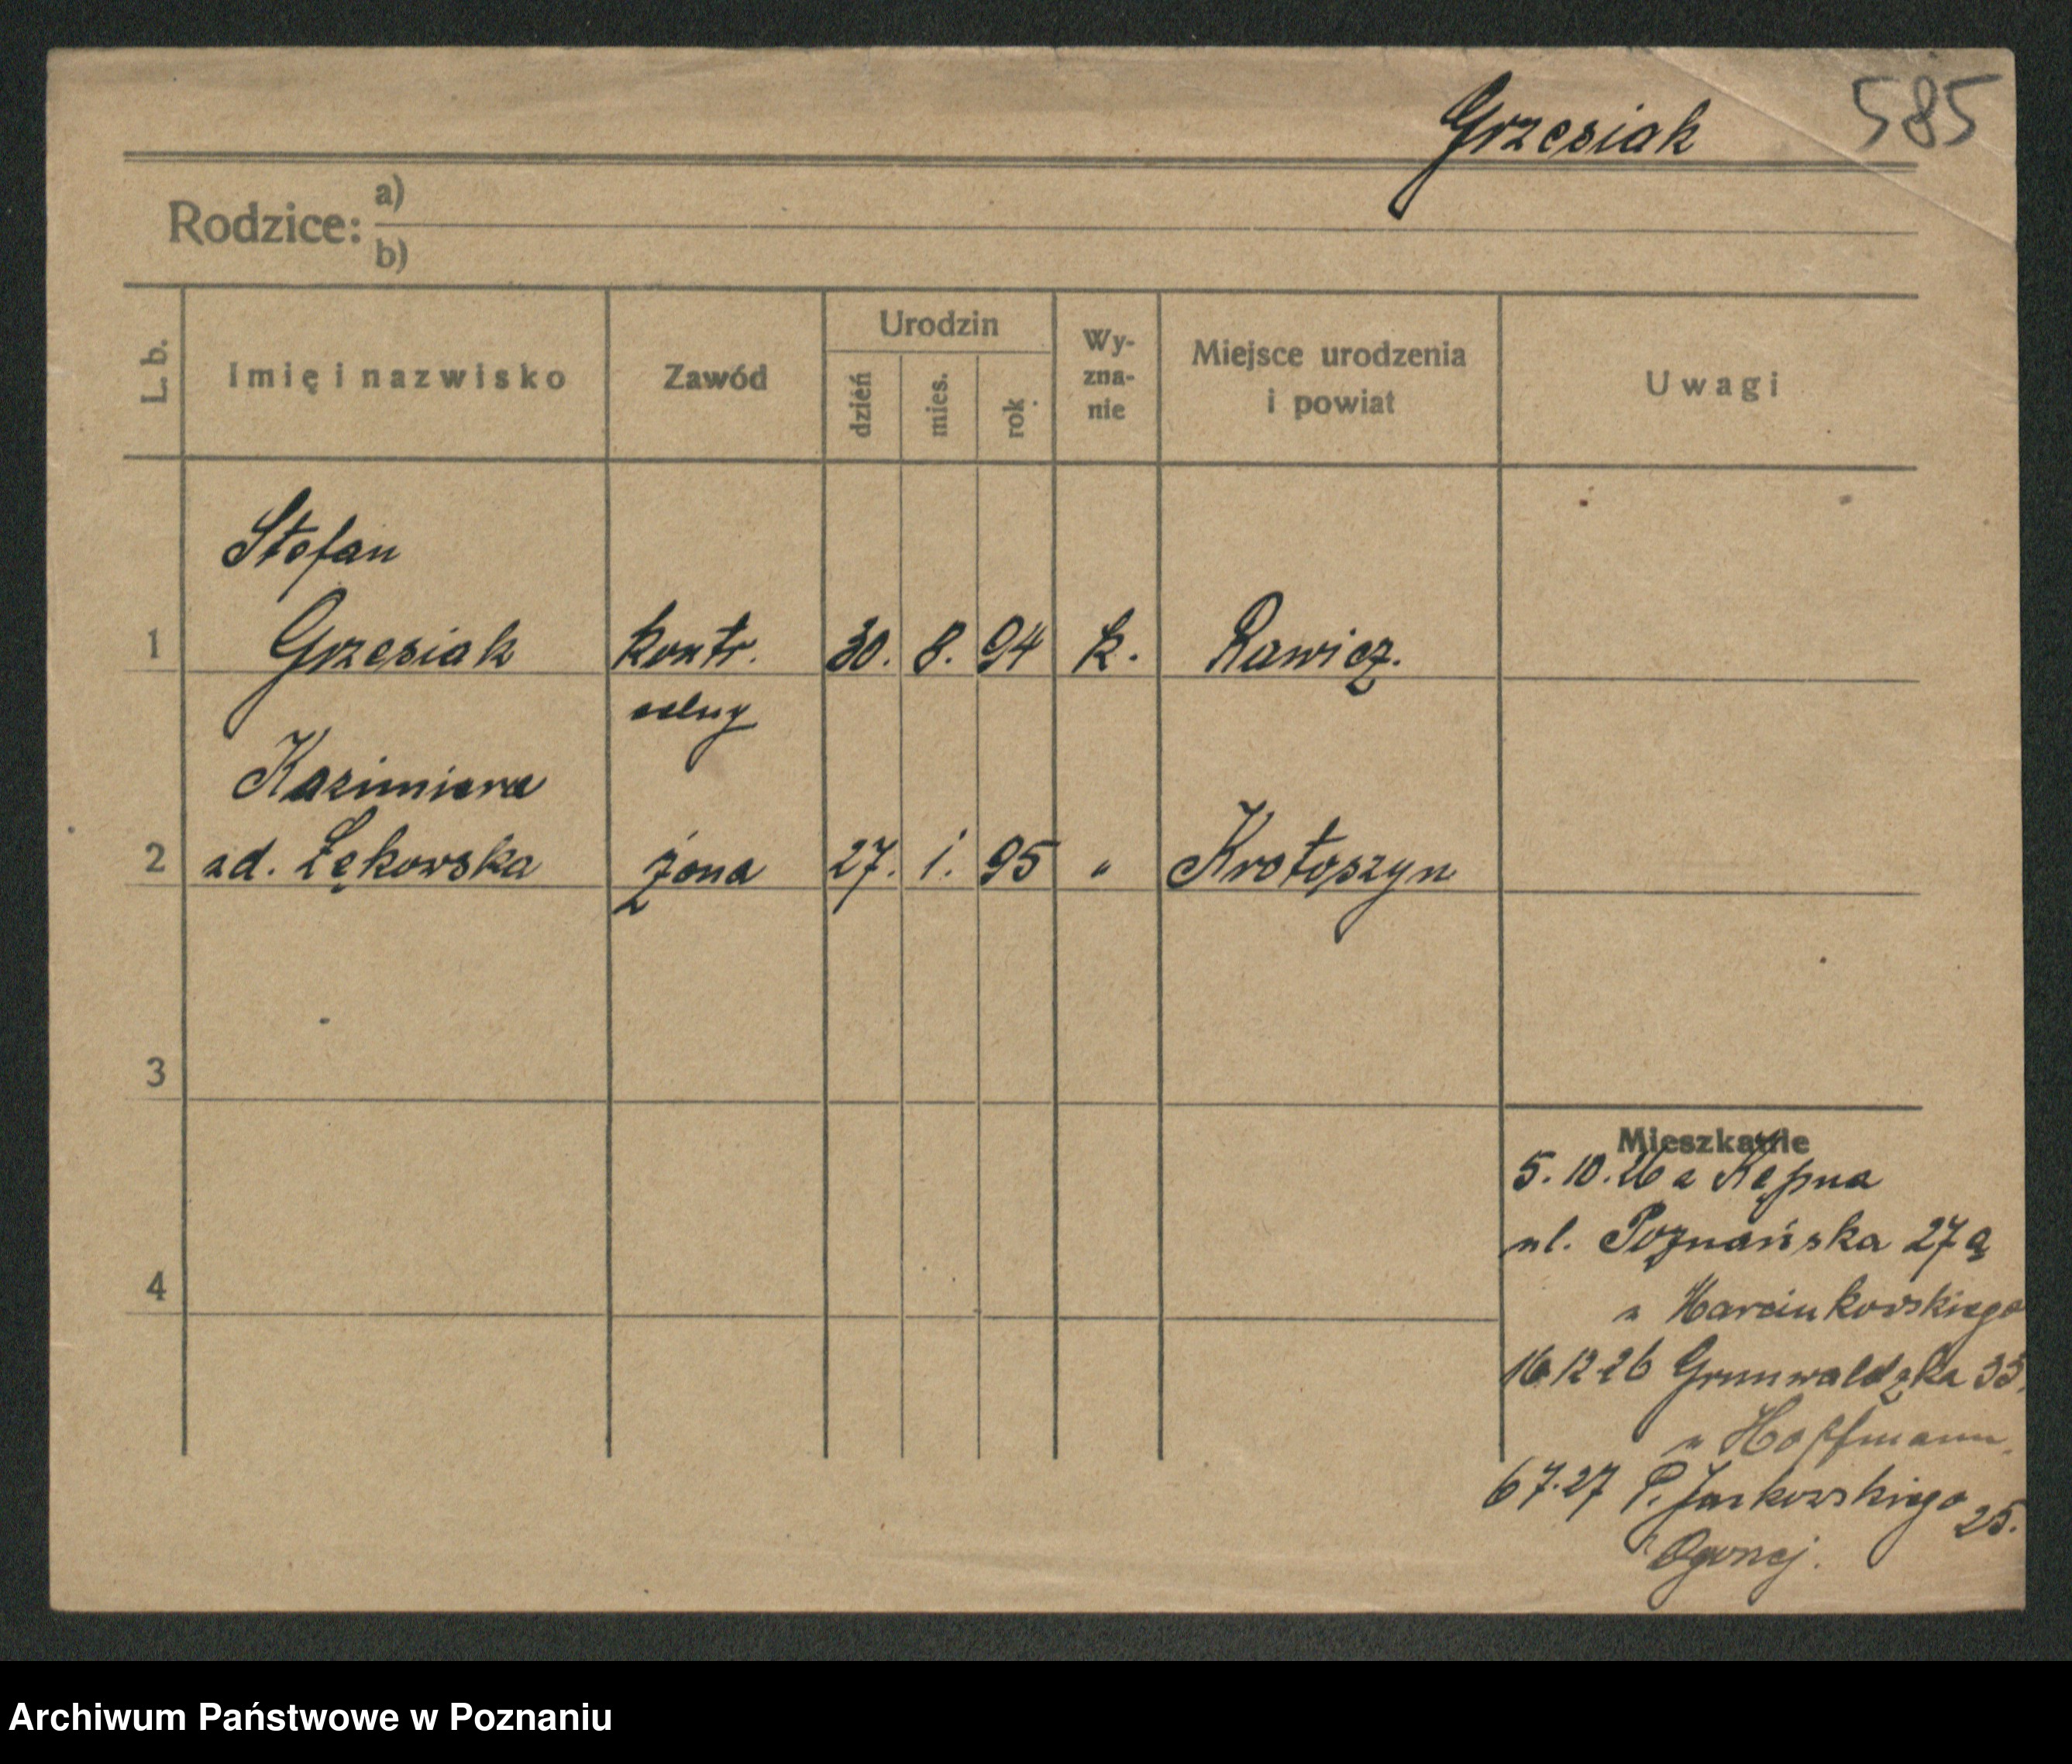 Grzesiak 585
Rodzice: a)
b)
L. b. Imię i nazwisko Zawód Urodzin dzień mies. rok Wy-zna-nie Miejsce urodzenia i powiat Uwagi
Stefan
1 Grzesiak kontr. 30. 8. 94 k. Rawicz.
celny
Kazimiera
2 zd. Łękowska żona 27. 1. 95 " Krotoszyn
3
4
Mieszkanie
5. 10. 26 z Kępna
ul. Poznańska 27a
u Marcinkowskiego
16 12 26 Grunwaldzka 33.
u Hoffmann.
6 7. 27 P. Jackowskiego 25.
Archiwum Państwowe w Poznaniu